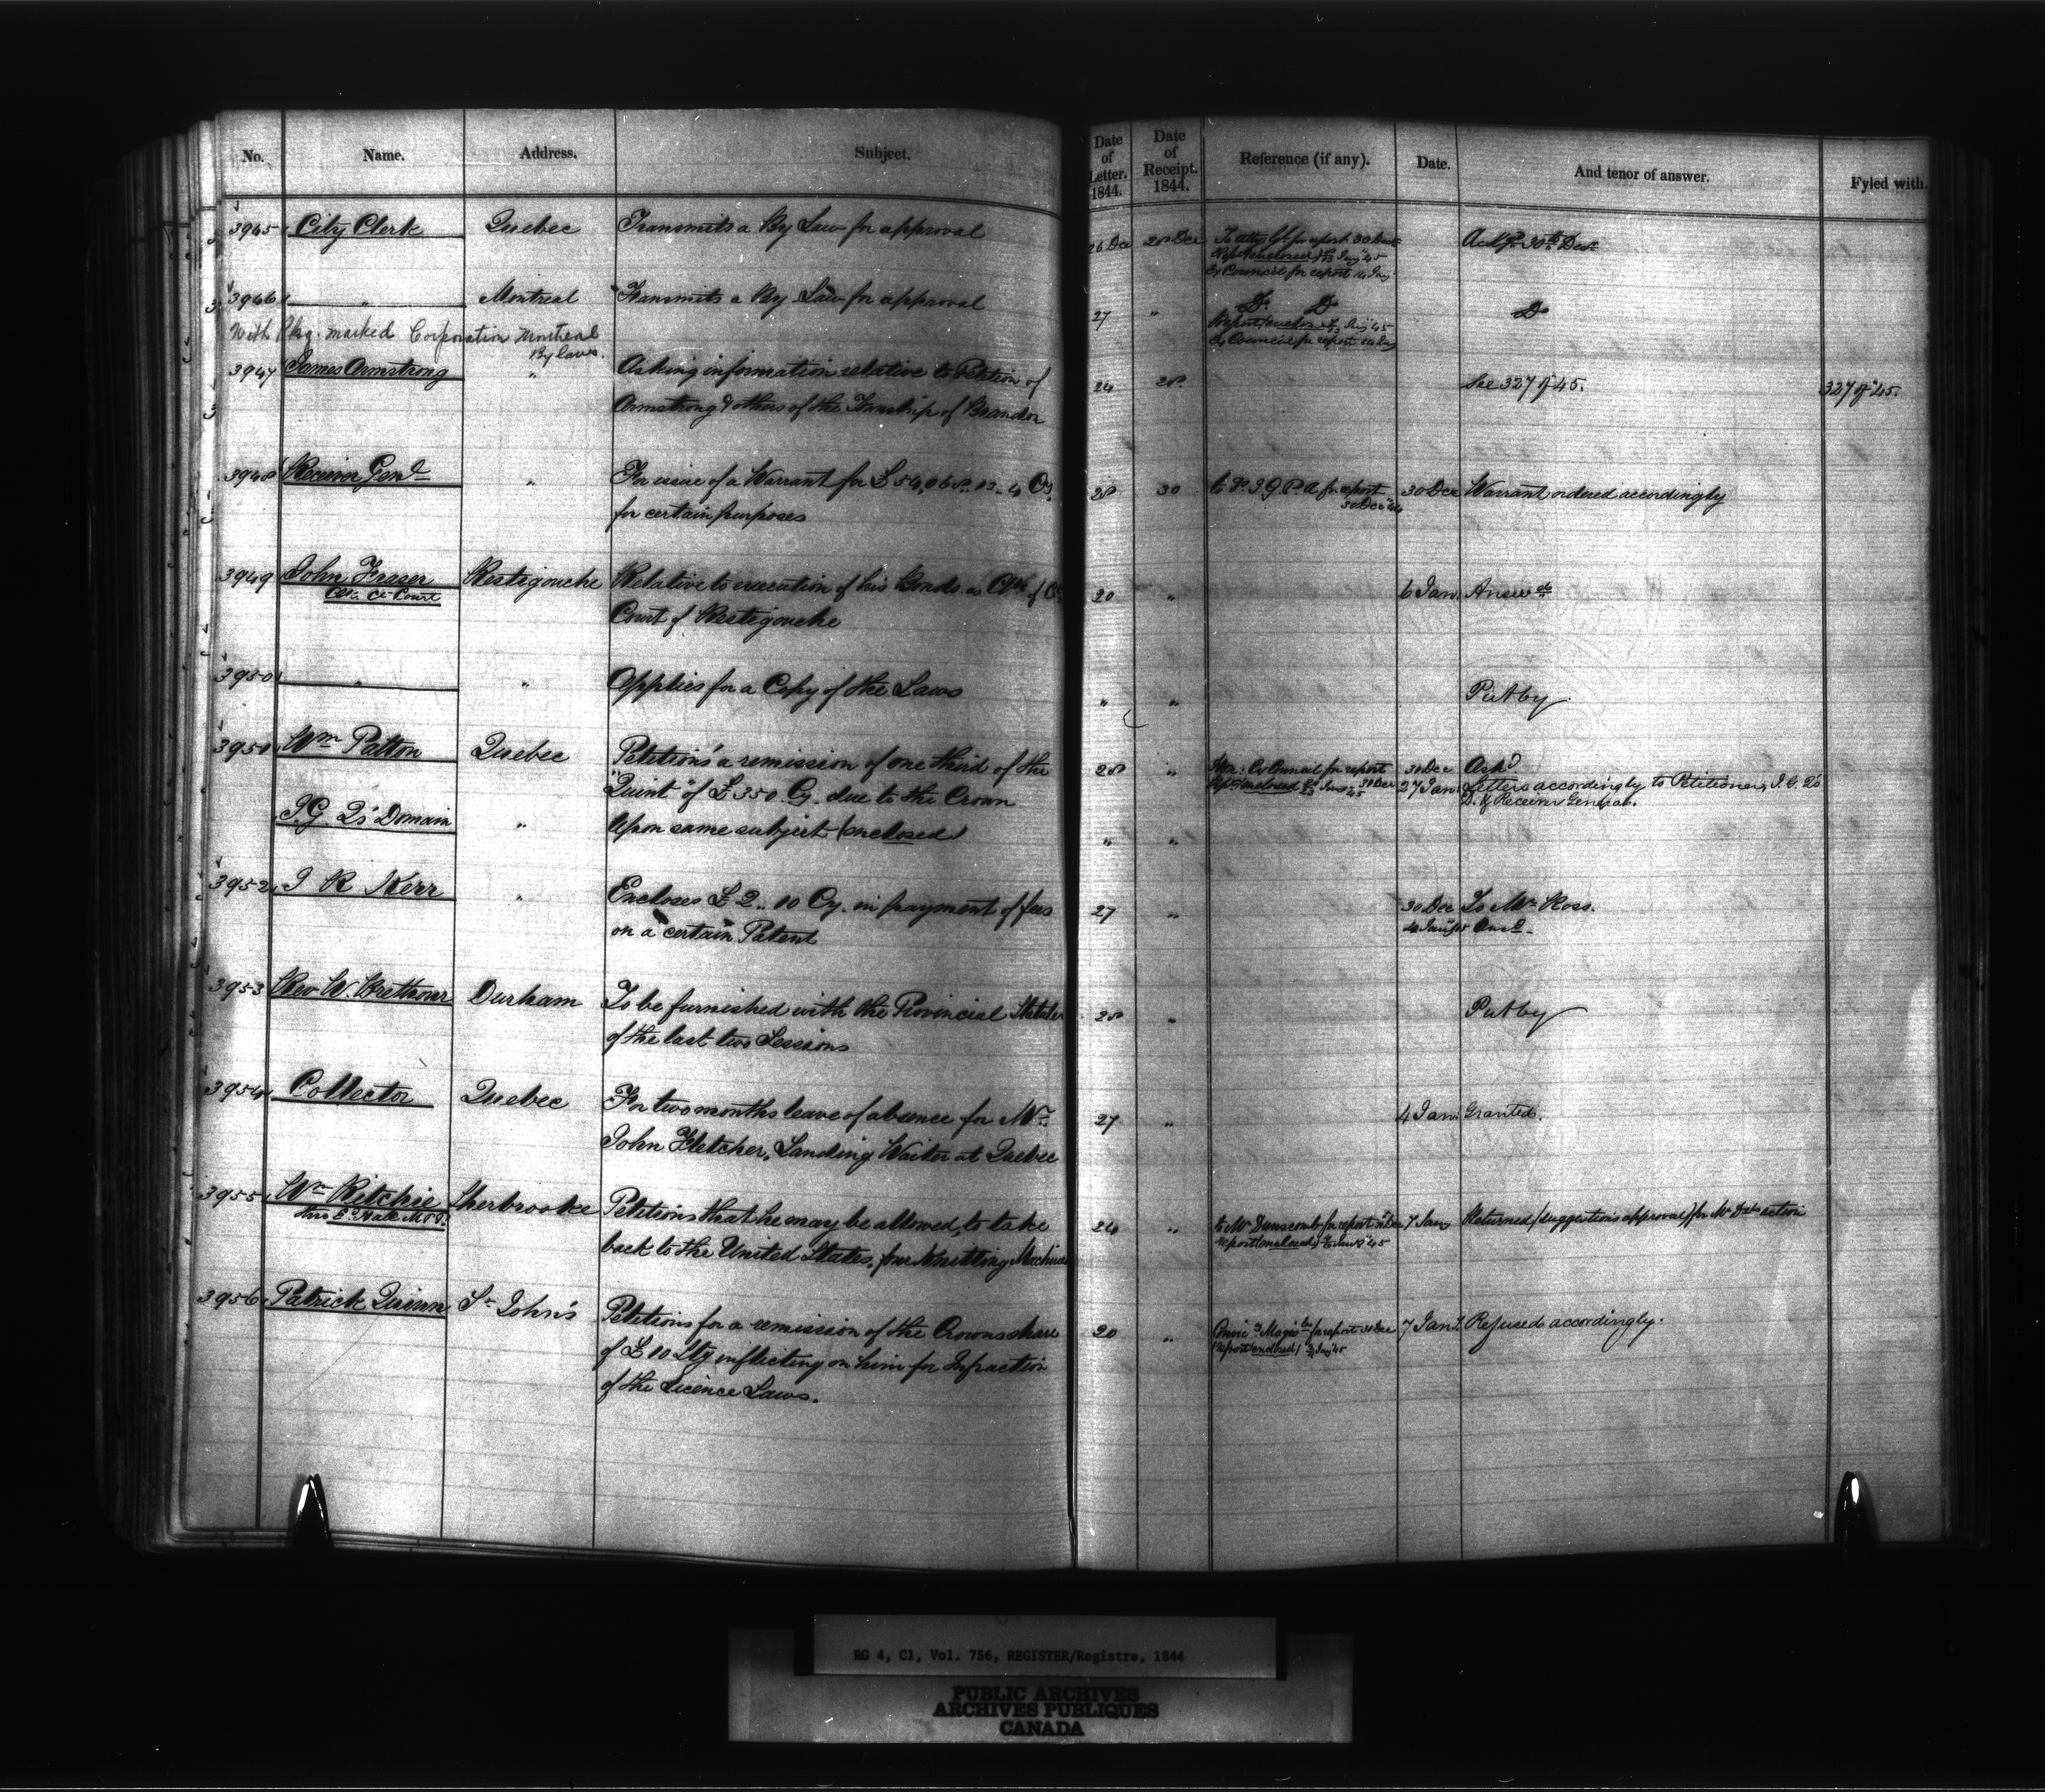 No. Name. Address. Subject. Date of Letter. 1844. Date of Receipt. 1844. Reference (if any). Date. And tenor of answer. Fyled with.
3945 City Clerk Quebec Transmits a By Law for approval 26 Dec 28 Dec To Atty Gl for report 30 Dec Ackgd 30th Dec
Report (enclosed) Jany 45
Ex Council for report 14 Jany
3946 " Montreal Transmits a By Law for approval 27 " Do Do Do
Report enclosed Jany 45
Ex Council for report 14 Jany
With Pkg. marked Corporation Montreal
By laws.
3947 James Armstrong " Asking information relative to Petition of 24 28 See 327 of 45. 327 of 45.
Armstrong & others of the Township of Brandon
3948 Receiver Genl " For issue of a Warrant for £54,068.13.4 Cy 28 30 to I. G. P. A for report 30 Dec Warrant ordered accordingly
for certain purposes 30 Dec 44
3949 John Fraser Restigouche Relative to execution of his Bonds as Clk of Ct 20 " 6 Jan. Answd
Clk. Ct. Court
Court of Restigouche
3950 " " Applies for a Copy of the Laws " " Put by
3951 Wm Patton Quebec Petitions a remission of one third of the 28 " Hon: Ex Council for report 30 Dec Ackd
"Quint" of £350 Cy. due to the Crown 30 Dec 27 Jan. Letters accordingly to Petitioner, I. G. Q's
D. & Receiver General.
I.G Q's Domain " Upon same subject (enclosed) " "
3952 J R Kerr " Encloses £2..10 Cy. in payment of fees 27 " 30 Dec To Mr Ross.
on a certain Patent 4 Jany 45 Ansd
3953 Rev W. Brethour Durham To be furnished with the Provincial Statutes 28 " Put by
of the last two Sessions
3954 Collector Quebec For two months leave of absence for Mr 27 " 4 Jan. Granted.
John Fletcher, Landing Waiter at Quebec
3955 Wm Ritchie Sherbrooke Petitions that he may be allowed, to take 24 " to Mr Dunscomb for report 31 Dec 7 Jan Returned (suggestions approval) for Mr Ds action
thro E. Hale M.P.P.
back to the United States, four Knitting Machines report (enclosed) Jany 45
3956 Patrick Quinn St John's Petitions for a remission of the Crowns share 20 " for report 31 Dec 7 Jan. Refused accordingly.
of £10 Stg inflicting on him for Infraction report (enclosed) Jany 45
of the Licence Laws.
RG 4, C1, Vol. 756, REGISTER/Registre, 1844
PUBLIC ARCHIVES
ARCHIVES PUBLIQUES
CANADA